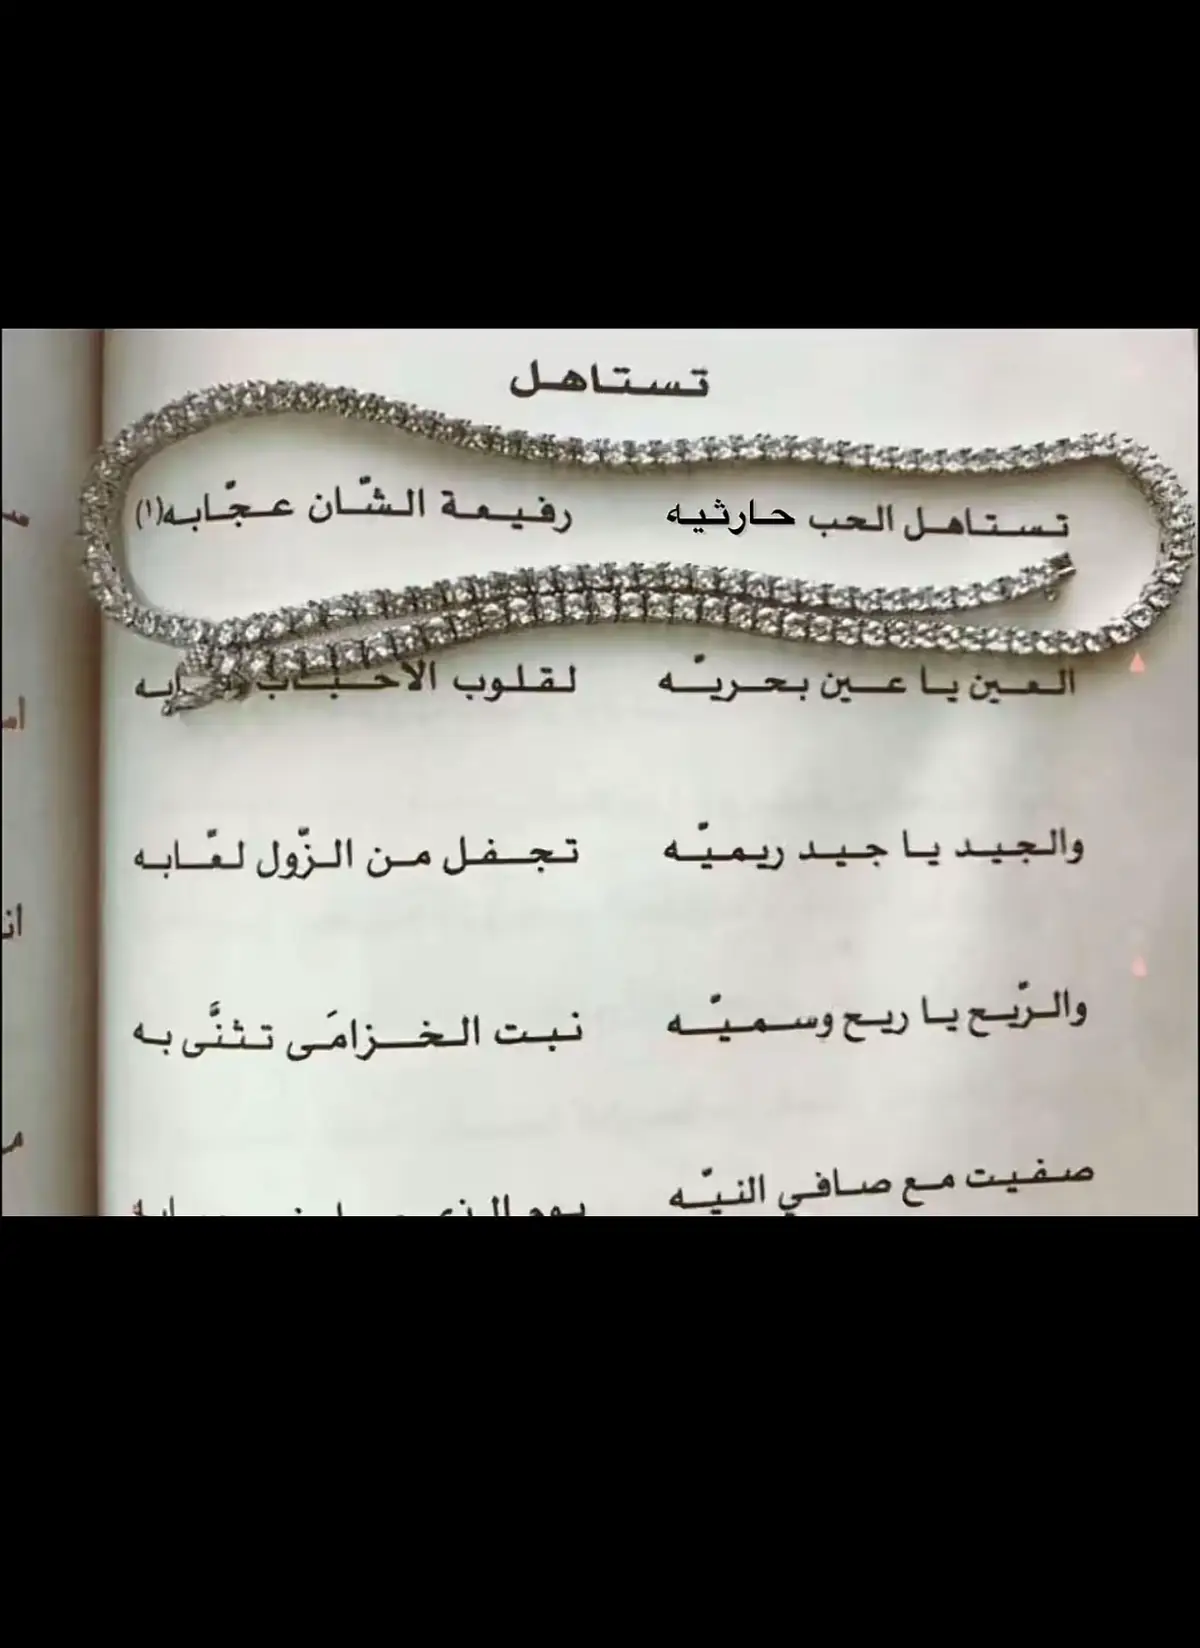 تستاهل
تستاهل الحب حارثيه رفيعة الشّان عجّابه(١)
العين يا عين بحريّه لقلوب الاحباب
والجيد يا جيد ريميّه تجفل من الزّول لعّابه
والرّيح يا ريح وسميّه نبت الخزامَى تثنَّى به
صفيت مع صافي النيّه